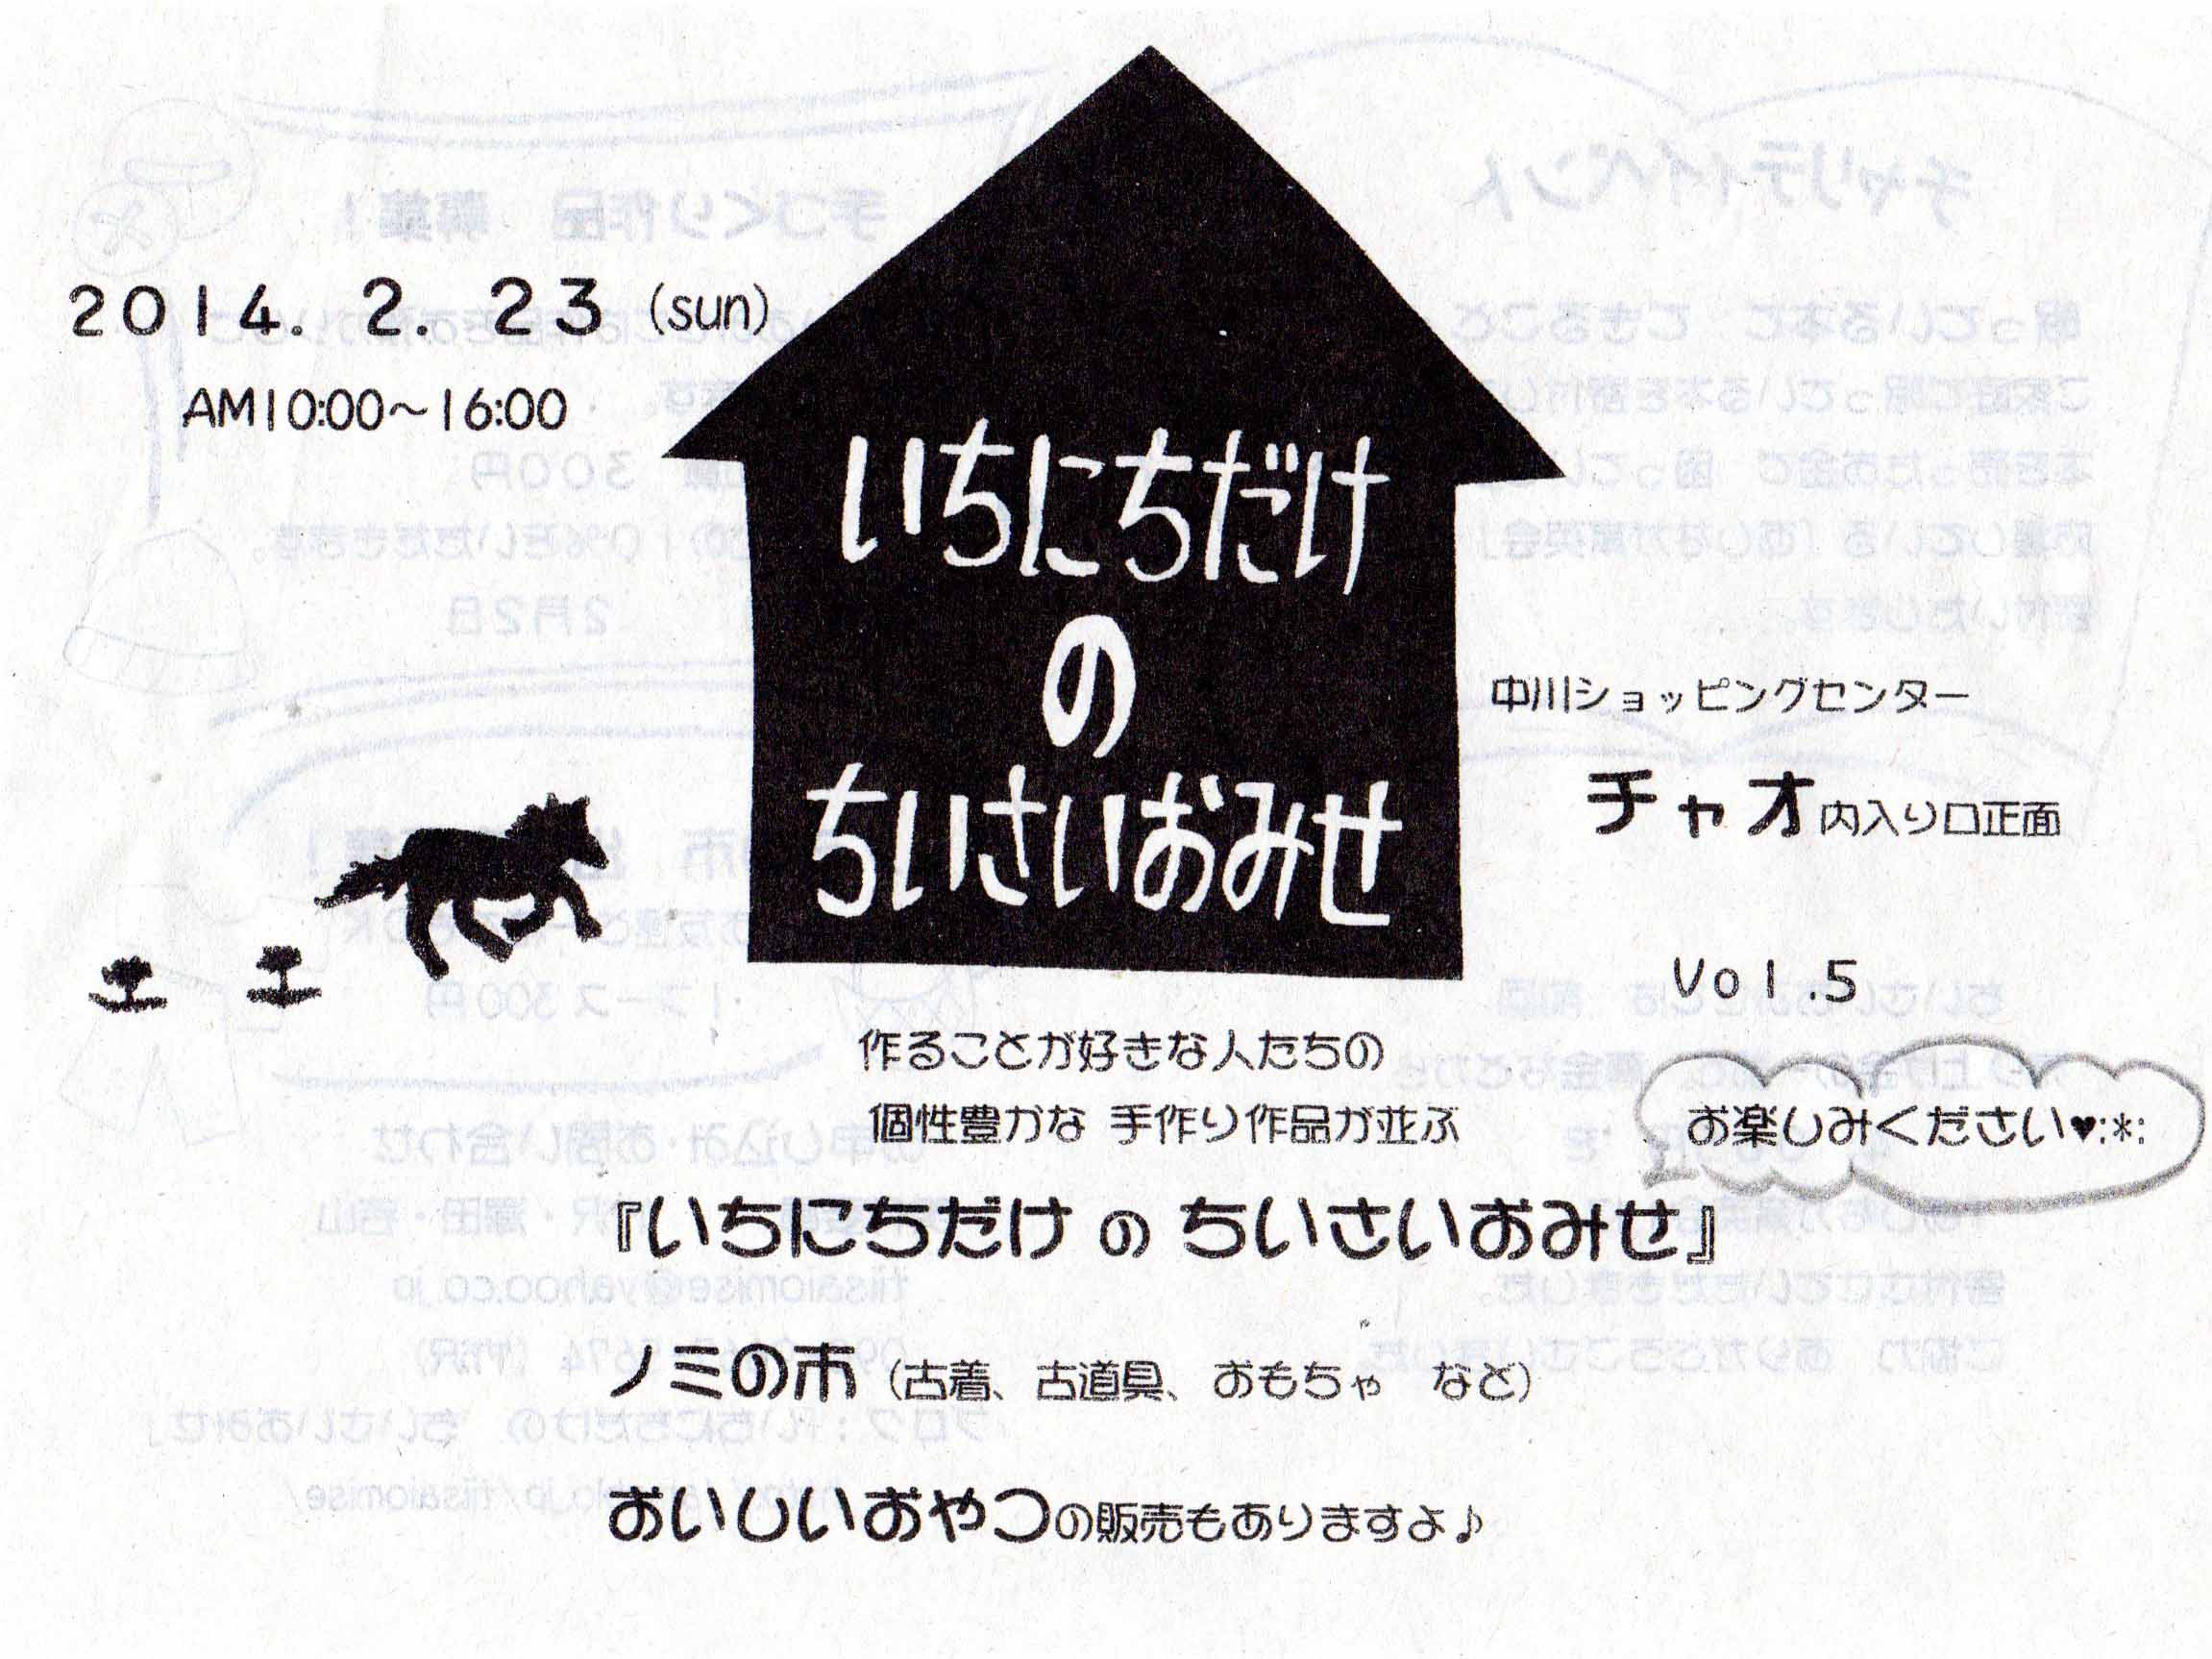 2014. 2. 23 (sun)
AM10:00～16:00
いちにちだけ
の
ちいさいおみせ
中川ショッピングセンター
チャオ内入り口正面
Vol.5
作ることが好きな人たちの
個性豊かな 手作り作品が並ぶ
お楽しみください♥:*:
『いちにちだけ の ちいさいおみせ』
ノミの市（古着、古道具、おもちゃ　など）
おいしいおやつの販売もありますよ♪